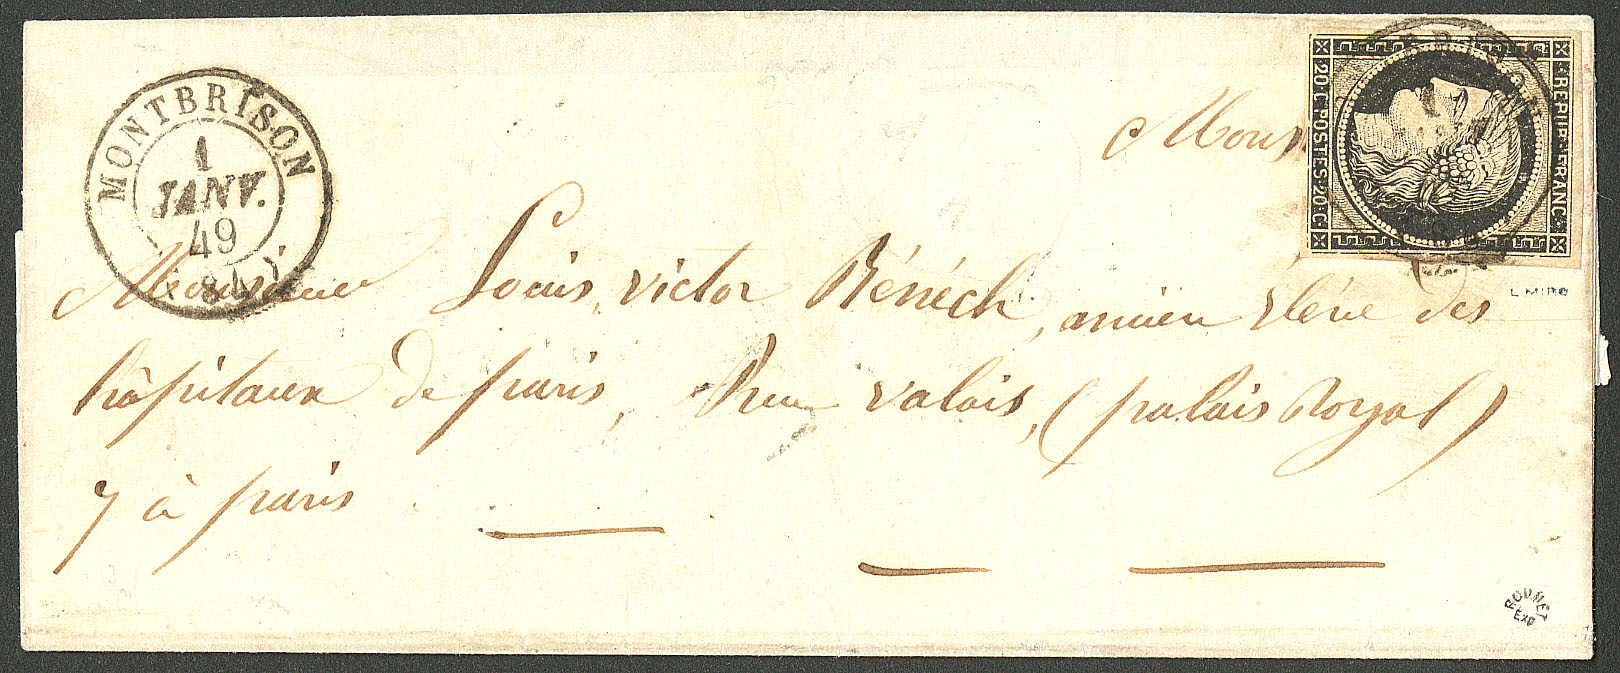 MONTBRISON
1
JANV.
49
(84)
REPUB. FRANC.
20.C POSTES.20.C
Mons
Monsieur Louis, victor Bénéch, ancien élève des
hôpitaux de paris, Rue valois, (palais Royal)
7 à paris
L MIRO
ROUMET
EXP